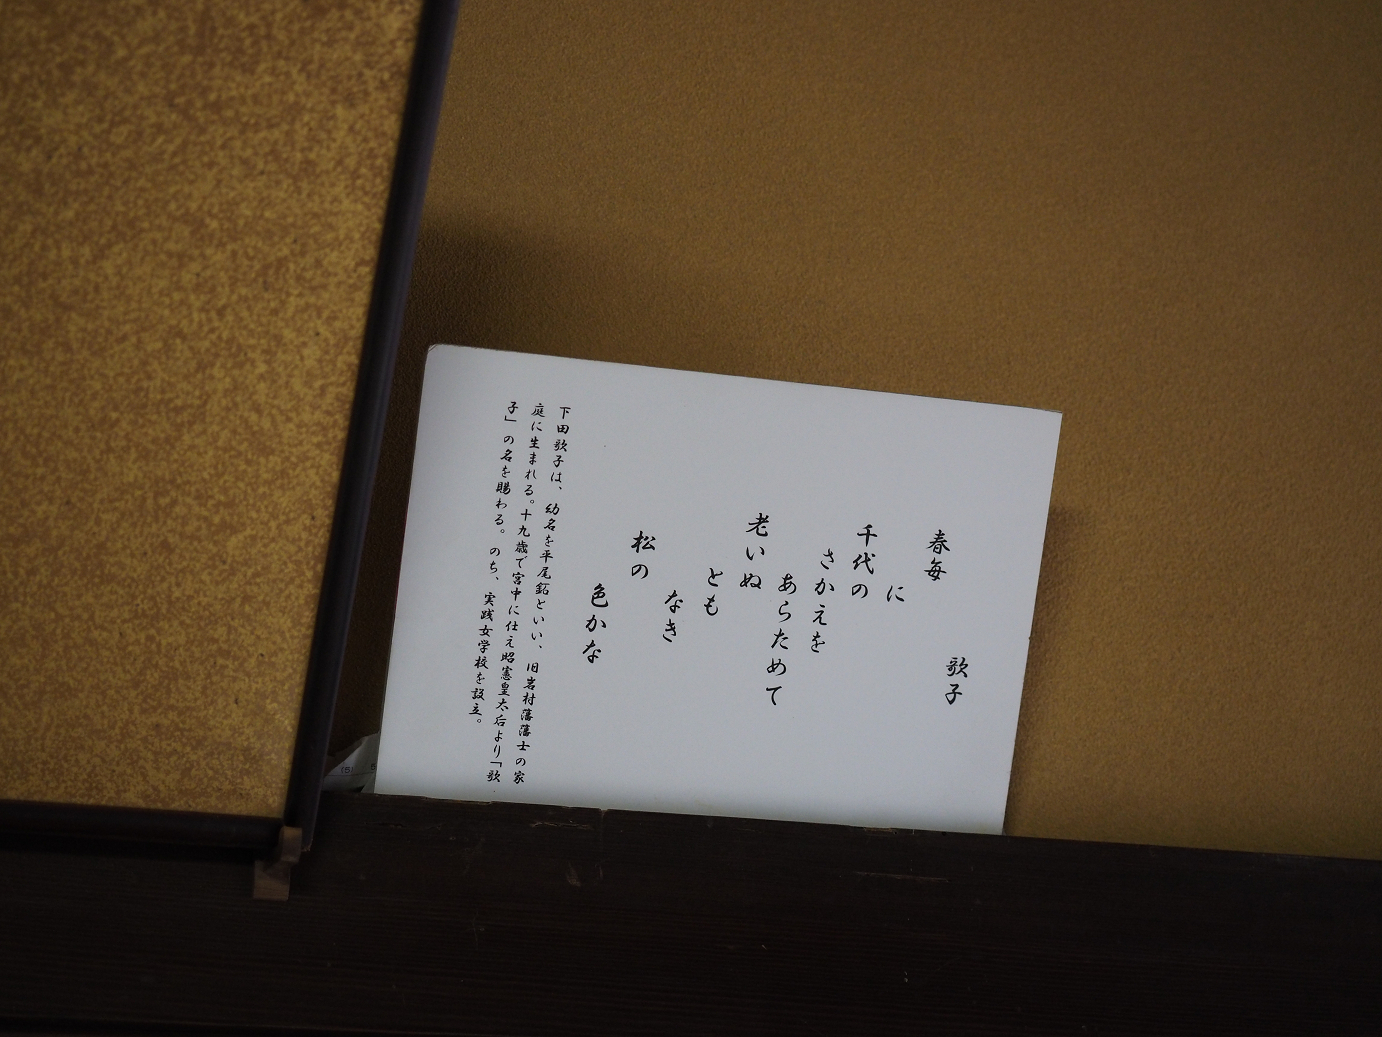 歌子
春毎
に
千代の
さかえを
あらためて
老いぬ
とも
なき
松の
色かな
下田歌子は、幼名を平尾鉐といい、旧岩村藩藩士の家
庭に生まれる。十九歳で宮中に仕え昭憲皇太后より「歌
子」の名を賜わる。のち、実践女学校を設立。
(5)